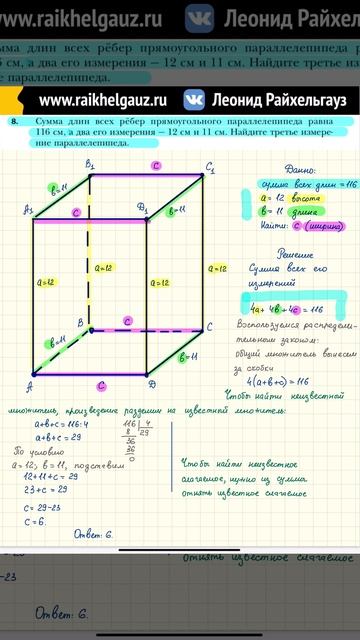 www.raikhelgauz.ru Леонид Райхельгауз
мма длин всех рёбер прямоугольного параллелепипеда р
6 см, а два его измерения — 12 см и 11 см. Найдите третье изме
е параллелепипеда.
www.raikhelgauz.ru Леонид Райхельгауз
8. Сумма длин всех рёбер прямоугольного параллелепипеда равна
116 см, а два его измерения — 12 см и 11 см. Найдите третье измере-
ние параллелепипеда.
B₁ C C₁
b=11 b=11
A₁ C D₁
a=12 a=12 a=12 a=12
B C C
b=11 b=11
A C D
Дано:
сумма всех длин = 116
a = 12 высота
b = 11 длина
Найти: c (ширина)
Решение
Сумма всех его
измерений
4a + 4b + 4c = 116
Воспользуемся распредели-
тельном законом:
общий множитель вынесем
за скобки
4(a+b+c) = 116
Чтобы найти неизвестной
множитель, произведение разделим на известной множитель:
a+b+c = 116:4
a+b+c = 29
По условию
a = 12; b = 11, подставим
12+11+c = 29
23+c = 29
c = 29-23
c = 6.
116 4
8 29
36
36
0
Чтобы найти неизвестное
слагаемое, нужно из суммы
отнять известное слагаемое
Ответ: 6.
отнять известное слагаемое
-23
Ответ: 6.